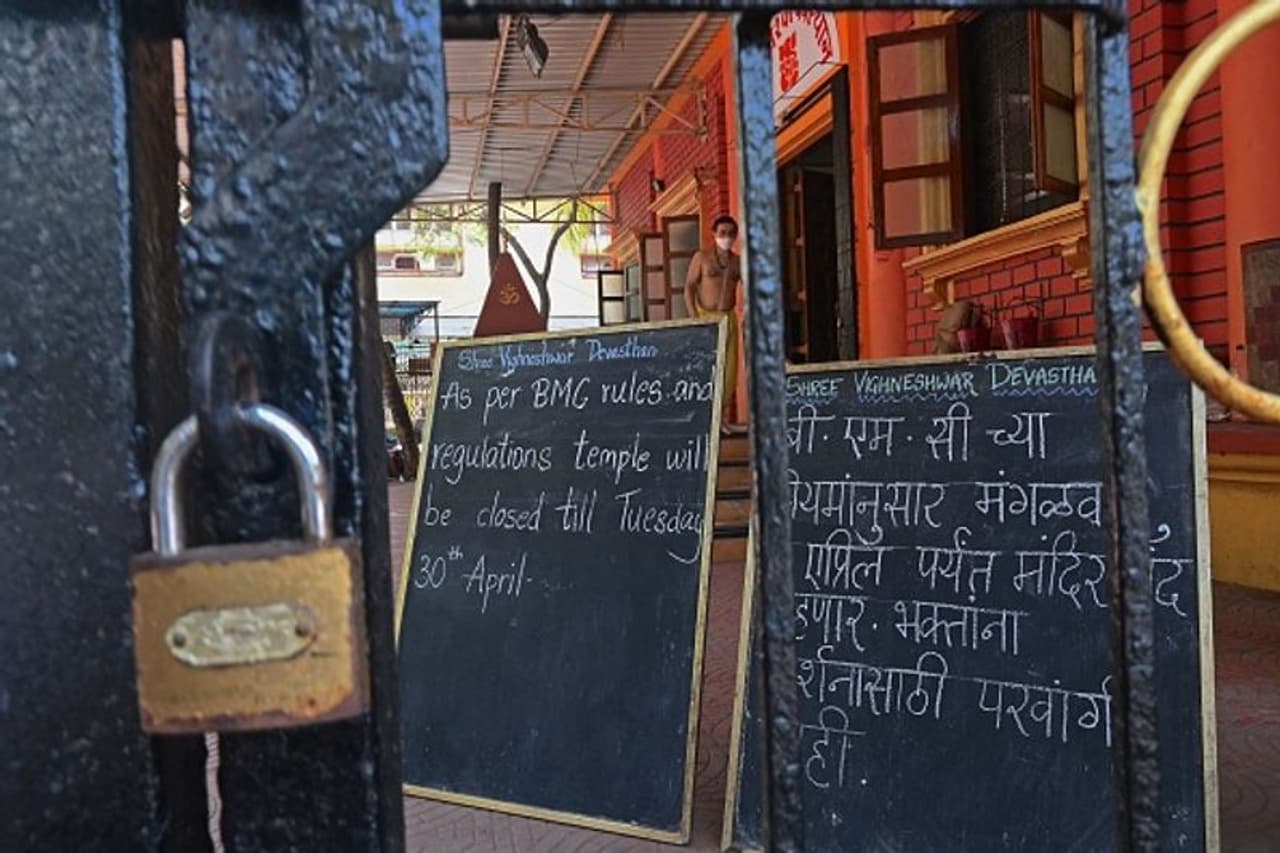 ॐ
Shree Vighneshwar Devasthan
As per BMC rules and
regulations temple will
be closed till Tuesday
30th April.
SHREE VIGHNESHWAR DEVASTHA
बी. एम. सी च्या
नियमांनुसार मंगळव
एप्रिल पर्यंत मंदिर बंद
हणार. भक्तांना
र्शनासाठी परवांग
ही.